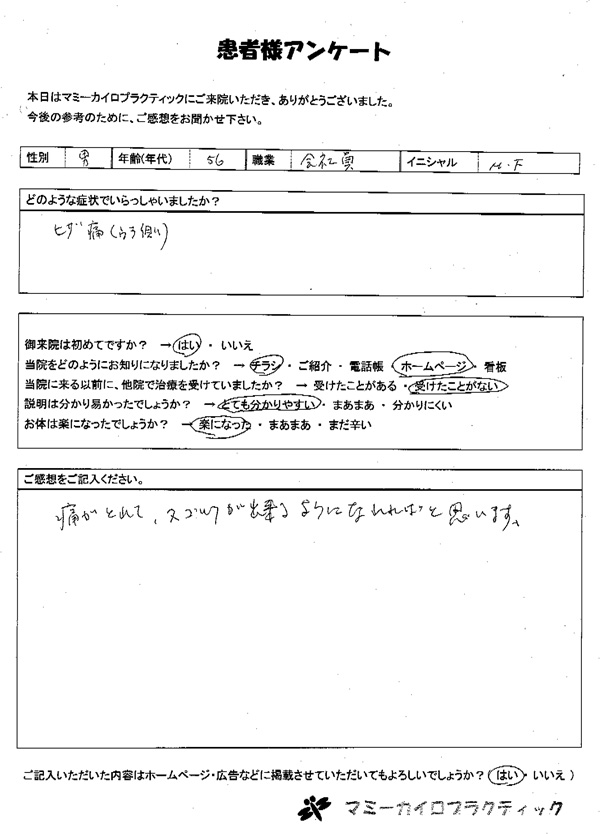 患者様アンケート
本日はマミーカイロプラクティックにご来院いただき、ありがとうございました。
今後の参考のために、ご感想をお聞かせ下さい。
性別 男 年齢(年代) 56 職業 会社員 イニシャル M.F
どのような症状でいらっしゃいましたか？
ヒザ痛(うら側)
御来院は初めてですか？ →はい・いいえ
当院をどのようにお知りになりましたか？ →チラシ・ご紹介・電話帳・ホームページ・看板
当院に来る以前に、他院で治療を受けていましたか？ →受けたことがある・受けたことがない
説明は分かり易かったでしょうか？ →とても分かりやすい・まあまあ・分かりにくい
お体は楽になったでしょうか？ →楽になった・まあまあ・まだ辛い
ご感想をご記入ください。
痛がとれて、又ゴルフが出来るようになれればと思います。
ご記入いただいた内容はホームページ・広告などに掲載させていただいてもよろしいでしょうか？(はい・いいえ)
マミーカイロプラクティック